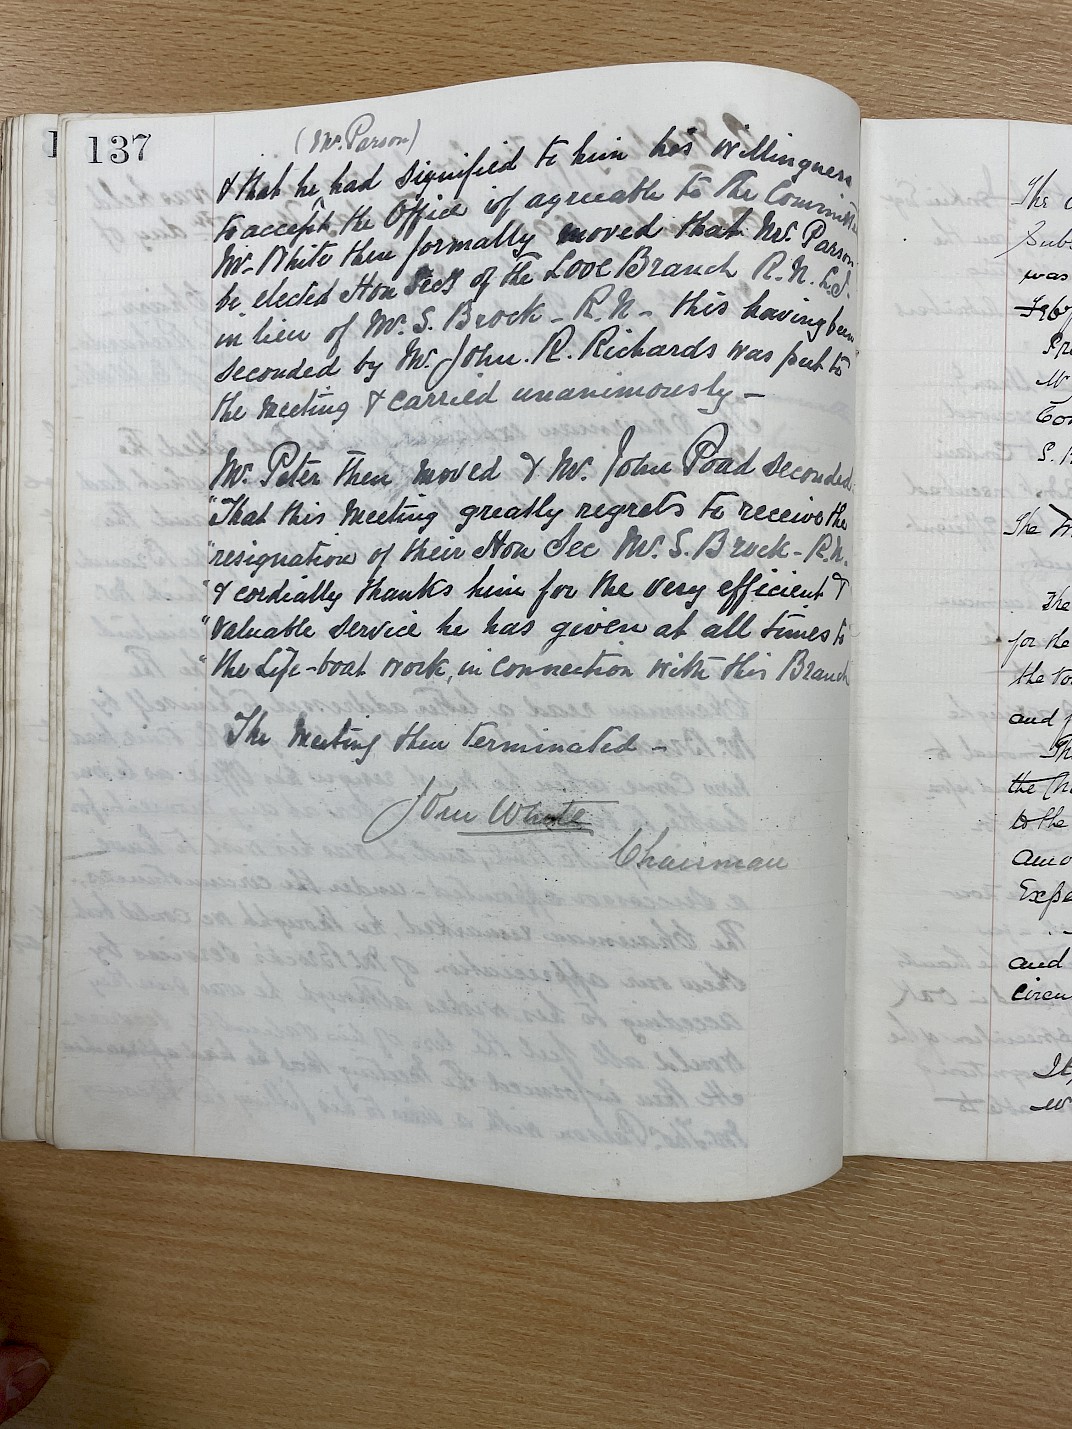 137
(Mr. Parson)
& that he had signified to him his willingness
to accept the Office if agreeable to the Committee
Mr. White then formally moved that Mr. Parson
be elected Hon Secy of the Looe Branch R.N.L.I.
in lieu of Mr. S. Brock - R.N - this having been
seconded by Mr. John. R. Richards was put to
the meeting & carried unanimously -
Mr. Peter then moved & Mr. John Poad seconded
"That this Meeting greatly regrets to receive the
"resignation of their Hon Sec Mr. S. Brock - R.N.
"& cordially thanks him for the very efficient &
"valuable service he has given at all times to
"the Life-boat work, in connection with this Branch
The Meeting then terminated -
John White
Chairman
The
was
Pr
Mr
S.
The
The
for the
the
and
the
to the
and
It